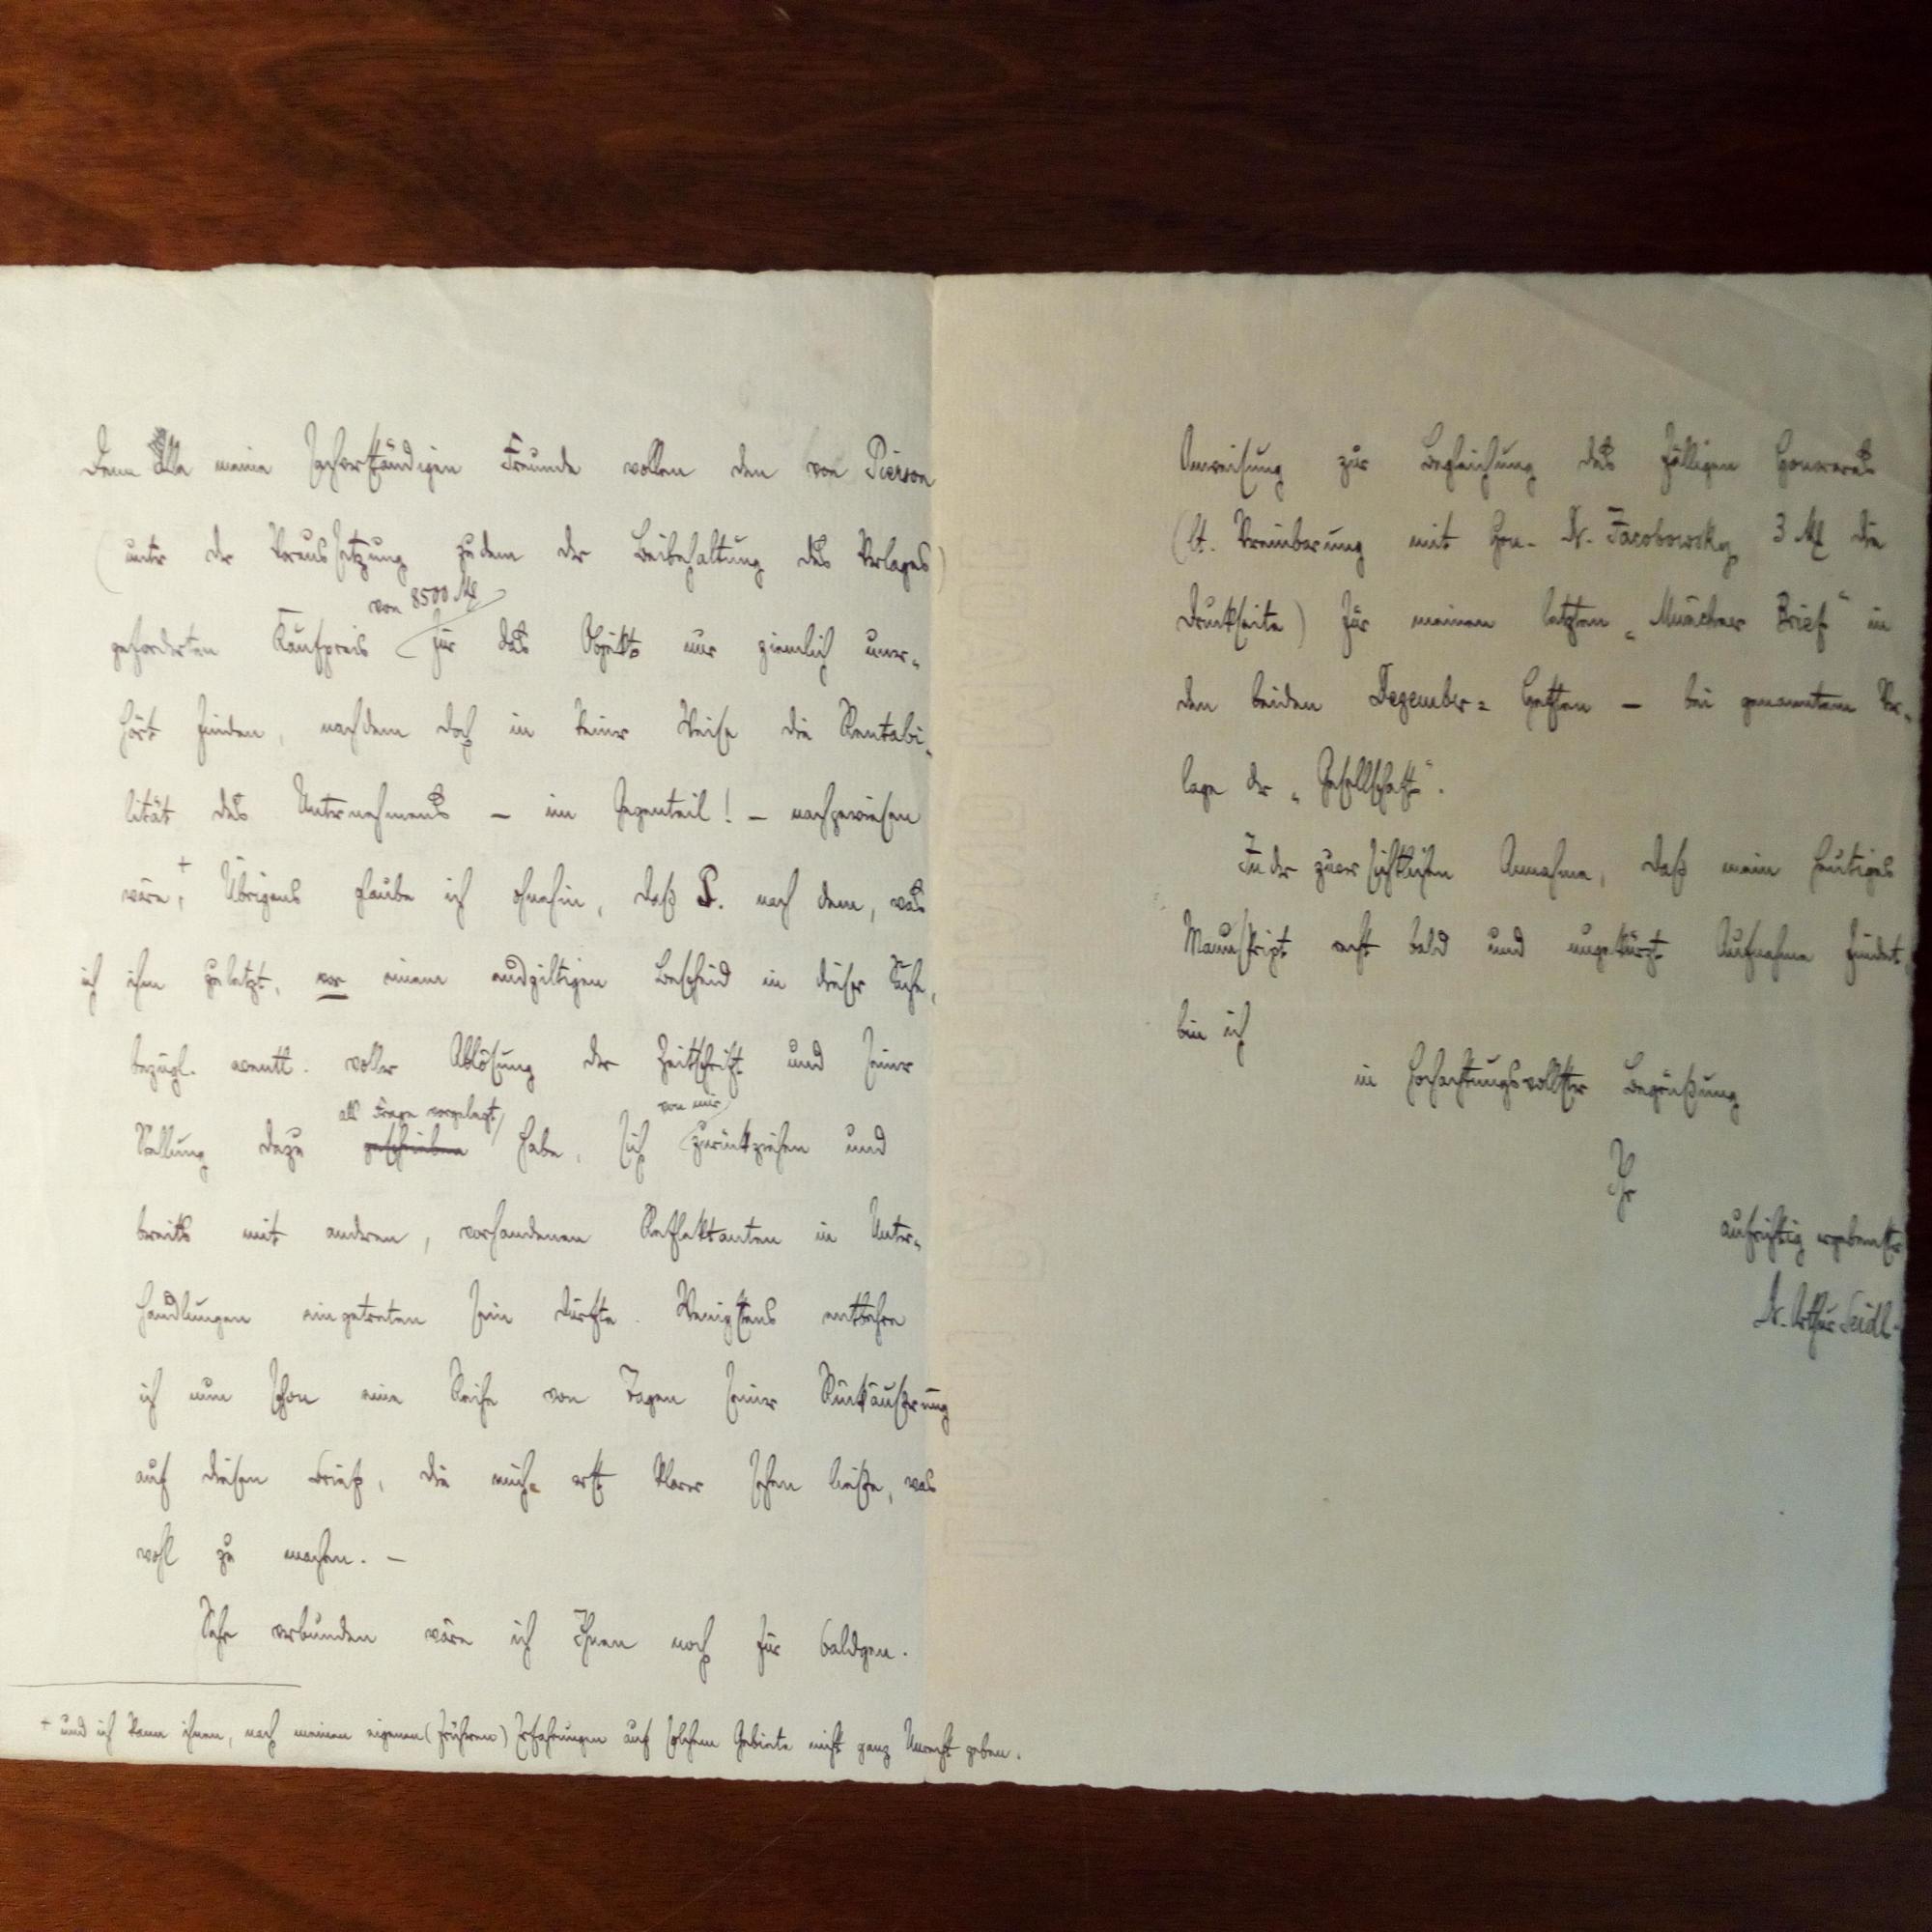 Denn Alle meine sachverständigen Freunde wollen den von Pierson
(unter der Voraussetzung zudem der Beibehaltung des Verlages)
geforderten Kaufpreis von 8500 M für das Objekt nur ziemlich uner-
hört finden, nachdem doch in keiner Weise die Rentabi-
lität des Unternehmens — im Gegenteil! — nachgewiesen
wäre,+ Übrigens glaube ich ohnehin, daß P. nach dem, was
ich ihm zuletzt, vor einem endgiltigen Bescheid in dieser Sache,
bezügl. eventl. voller Ablösung der Zeitschrift und seiner
Stellung dazu geschrieben als Frage vorgelegt habe, sich von mir zurückziehen und
bereits mit anderen, vorhandenen Reflektanten in Unter-
handlungen eingetreten sein dürfte. Wenigstens entbehre
ich nun schon eine Reihe von Tagen seiner Rückäußerung
auf diesen Brief, die mich erst klarer sehen ließe, was
wohl zu machen. —
Sehr verbunden wäre ich Ihnen noch für baldgen.
+ und ich kann ihnen, nach meinen eigenen (früheren) Erfahrungen auf solchem Gebiete nicht ganz Unrecht geben.
Anweisung zur Begleichung des fälligen Honorares
(lt. Vereinbarung mit Hrn. Dr. Jacobowsky 3 M die
Druckseite) für meinen letzten „Münchner Brief" in
den beiden Dezember-Heften — bei genanntem Ver-
lage der „Gesellschaft".
In der zuversichtlichen Annahme, daß mein heutiges
Manuskript recht bald und ungekürzt Aufnahme findet,
bin ich
in hochachtungsvollster Begrüßung
Ihr
aufrichtig ergebenster
Dr. Arthur Seidl.